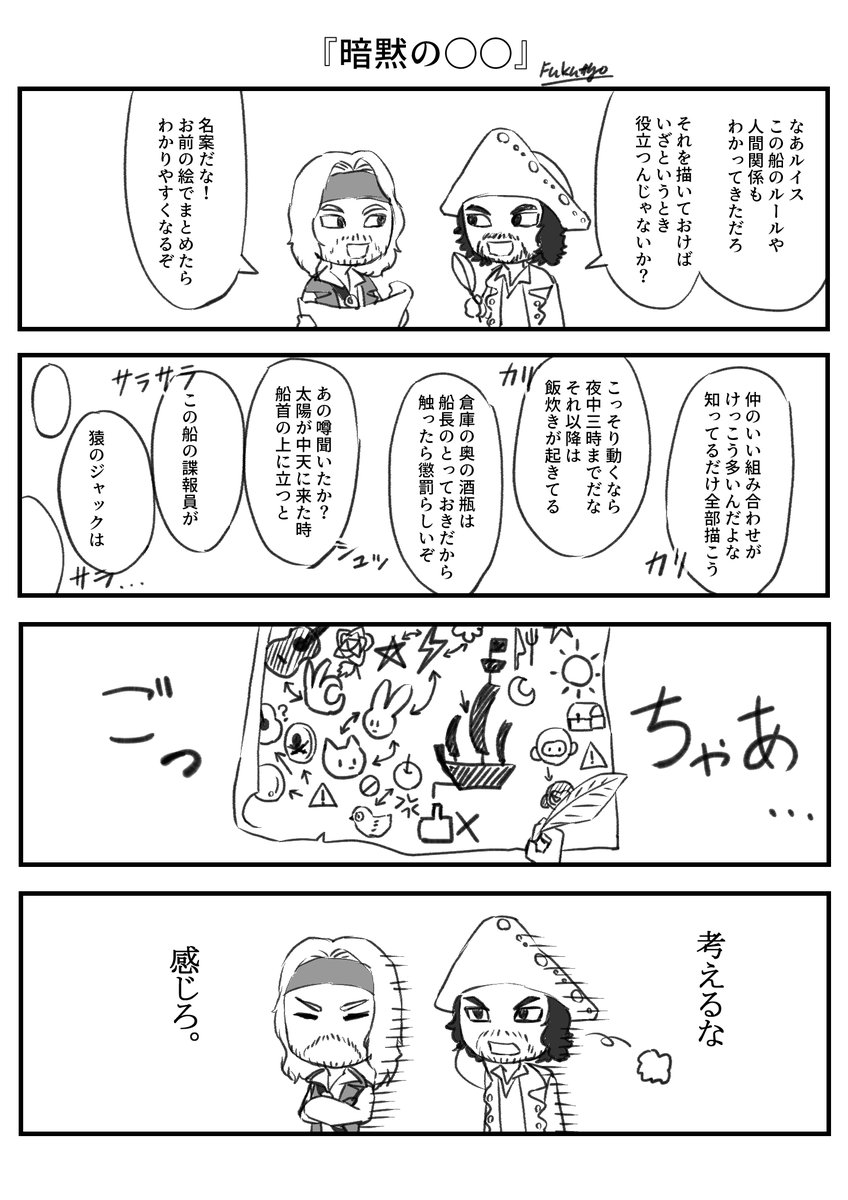 『暗黙の○○』
Fukutyo
なあルイス
この船のルールや
人間関係も
わかってきただろ
それを描いておけば
いざというとき
役立つんじゃないか?
名案だな!
お前の絵でまとめたら
わかりやすくなるぞ
仲のいい組み合わせが
けっこう多いんだよな
知ってるだけ全部描こう
ガリ
こっそり動くなら
夜中三時までだな
それ以降は
飯炊きが起きてる
カリ
倉庫の奥の酒瓶は
船長のとっておきだから
触ったら懲罰らしいぞ
あの噂聞いたか?
太陽が中天に来た時
船首の上に立つと
シュッ
この船の諜報員が
サラサラ
猿のジャックは
サラ...
ちゃあ...
ごっ
?
考えるな
感じろ。